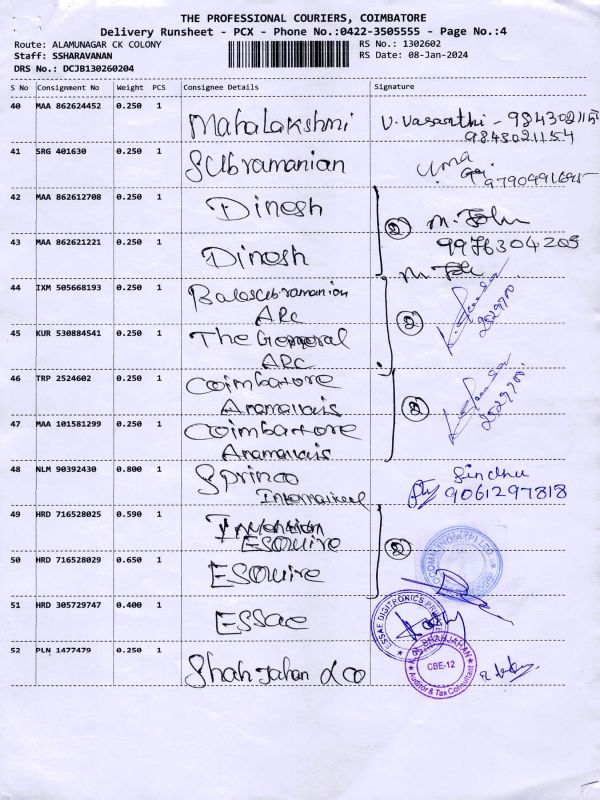 THE PROFESSIONAL COURIERS, COIMBATORE
Delivery Runsheet - PCX - Phone No.:0422-3505555 - Page No.:4
Route: ALAMUNAGAR CK COLONY
RS No.: 1302602
Staff: SSHARAVANAN
RS Date: 08-Jan-2024
DRS No.: DCJB130260204
S No Consignment No Weight PCS Consignee Details Signature
40 MAA 862624452 0.250 1 Mahalakshmi V. Vasanthi - 9843021154
9843021154
41 SRG 401630 0.250 1 Subramanian Uma
42 MAA 862612708 0.250 1 Dinesh 2 M. John
9976304205
43 MAA 862621221 0.250 1 Dinesh
44 IXM 505668193 0.250 1 Balasubramanion
ARC 2
45 KUR 530884541 0.250 1 The General
ARC
46 TRP 2524602 0.250 1 Coimbatore
Anamallais 2
47 MAA 101581299 0.250 1 Coimbattore
Anamallais
48 NLM 90392430 0.800 1 Sprinoo Sindhu
9061297818
49 HRD 716528025 0.590 1
ESQuire 2
50 HRD 716528029 0.650 1 ESQuire
51 HRD 305729747 0.400 1 ESSae
ESSAE DIGITRONICS
52 PLN 1477479 0.250 1 Shah Jahan & Co
SHAHJAHAN
CBE-12
Auditor & Tax Consultant